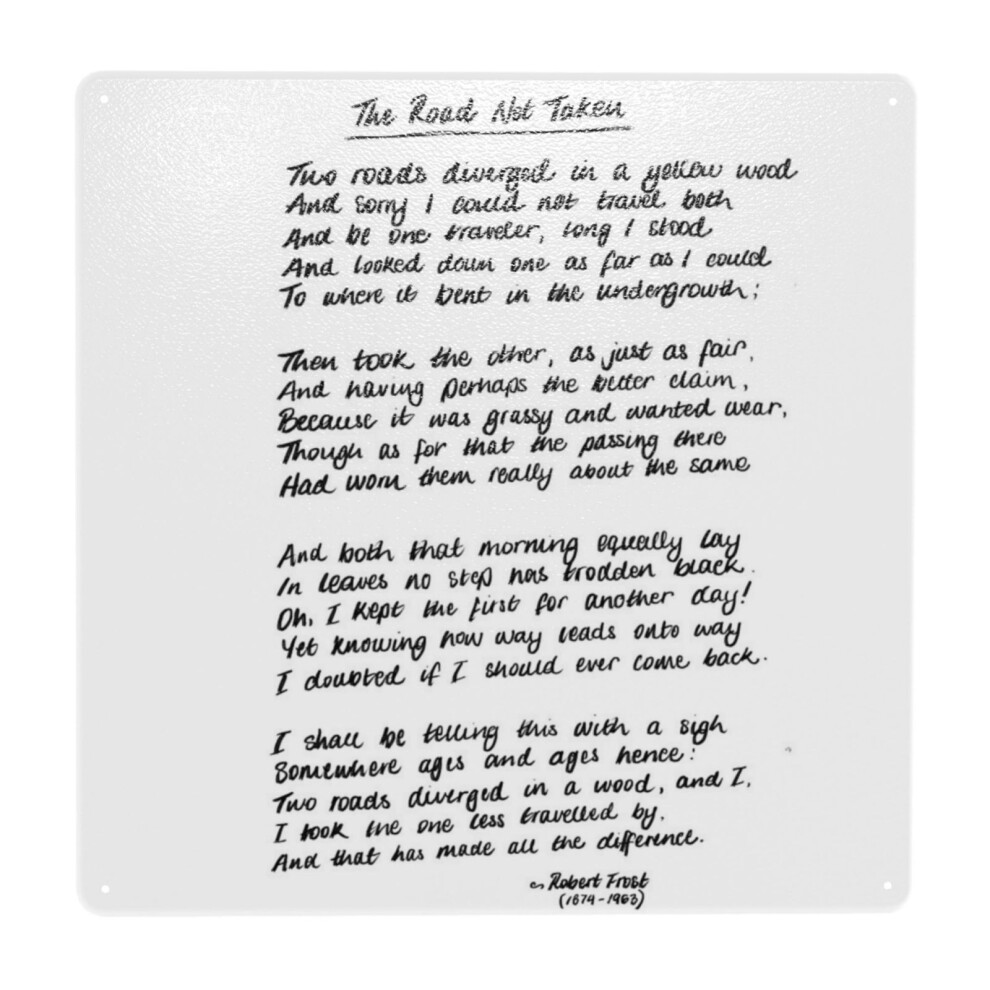 The Road Not Taken
Two roads diverged in a yellow wood
And sorry I could not travel both
And be one traveler, long I stood
And looked down one as far as I could
To where it bent in the undergrowth;
Then took the other, as just as fair,
And having perhaps the better claim,
Because it was grassy and wanted wear,
Though as for that the passing there
Had worn them really about the same
And both that morning equally lay
In leaves no step has trodden black.
Oh, I kept the first for another day!
Yet knowing how way leads onto way
I doubted if I should ever come back.
I shall be telling this with a sigh
Somewhere ages and ages hence:
Two roads diverged in a wood, and I,
I took the one less travelled by,
And that has made all the difference.
~ Robert Frost
(1874-1963)